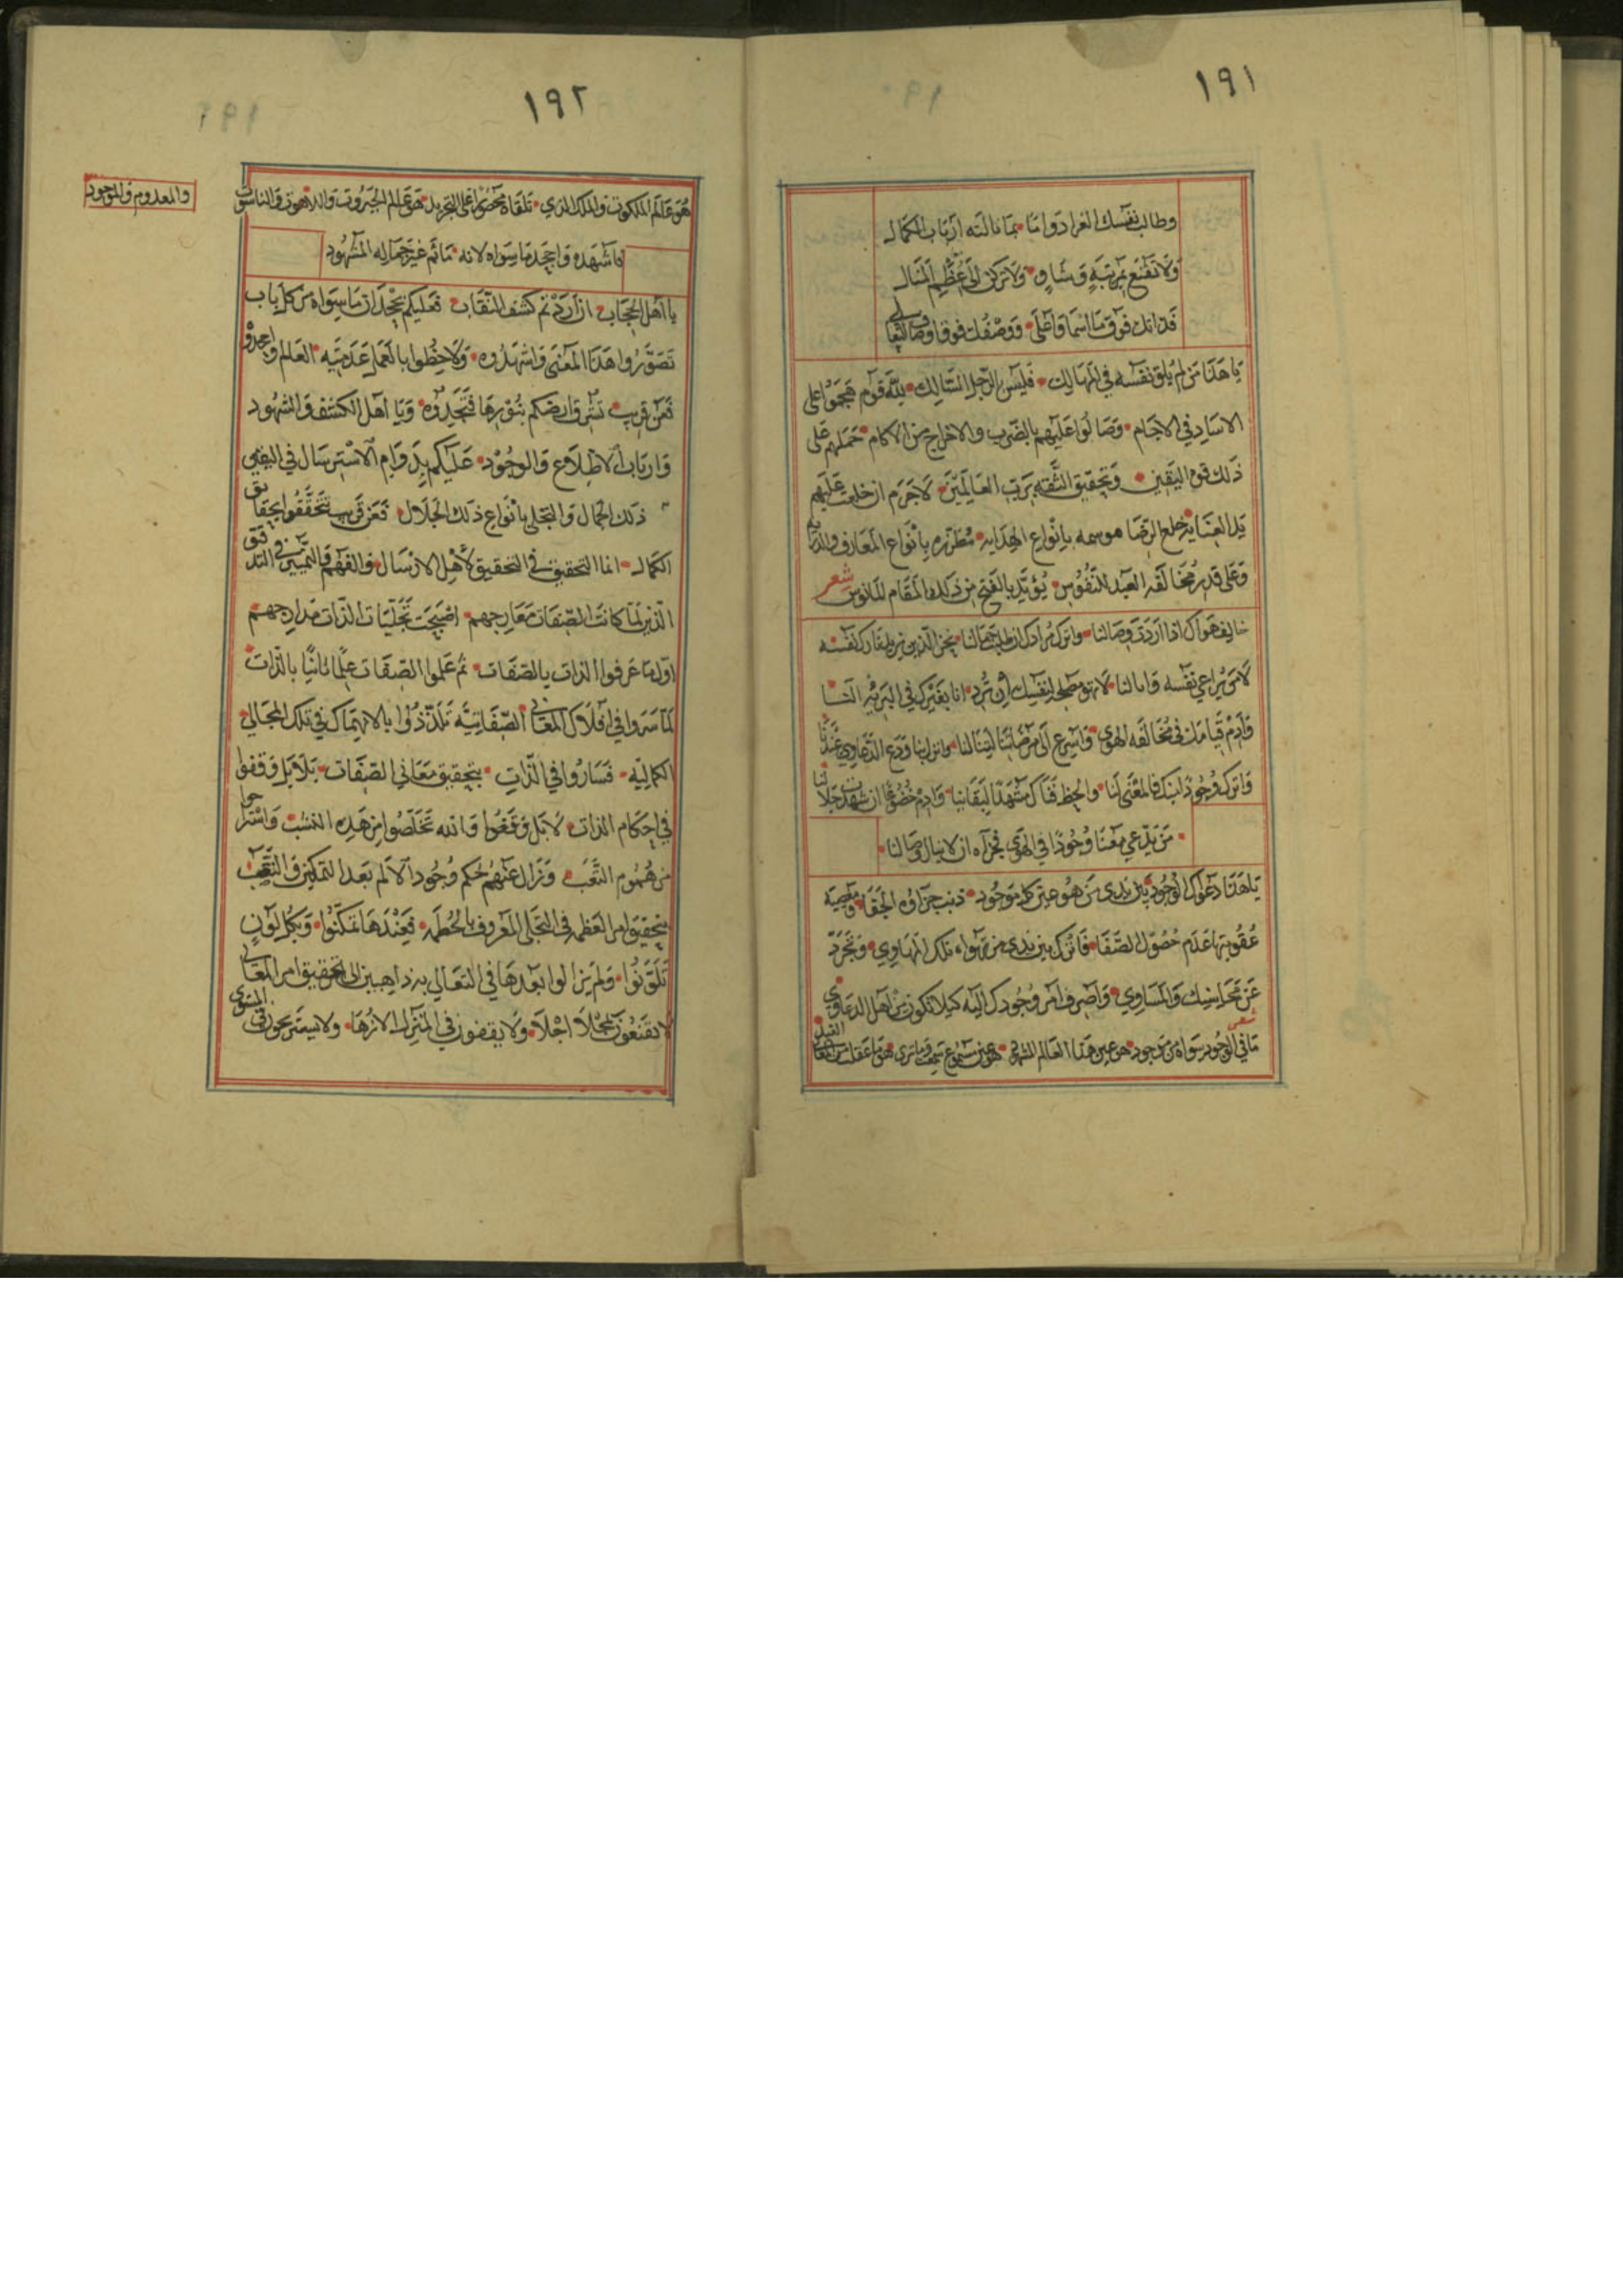 ١٩١
وطالب نفسك الغرا دواما • بما نالته ارباب الكمال
ولا تقنع بمرتبة وشاو • ولا تركن الى عظيم المنال
فذاتك فوق ما اسما واعلى • ووصفك فوق اوصاف
يا هذا من لم يلق نفسه في المهالك • فليس بالرجل السالك • لله قوم هجموا على
الاساد في الاجام • وصالوا عليهم بالضرب والاخراج من الاكام • حملهم على
ذلك قوة اليقين • وتحقيق الثقه برب العالمين • لاجرم ان خلعت عليهم
يد العناية خلع الرضا موسمه بانواع الهدايه • مطرزه بانواع المعارف
وعلى قدر مخالفه العبد للنفوس • يؤيد بالفتح من ذلك المقام المانوس شعر
خالف هواك اذا اردت وصالنا • واترك مرادك ان طلبت جمالنا • نحن الذين نريد تارك نفسه
لا من يراعي نفسه وابا لنا •
وادم قيامك في مخالفه الهوى • واسرع الى مرضاتنا لتنالنا • وانزل بنا ودع الدعاوي عندنا
واترك وجودا لبنك فالمغنى لنا • والحظ فناك مشهدا لبقائنا • وادم خضوعا ان شهدت جلالنا
• من يدعي معنا وجودا في الهوى فجزآه ان لا ينال وصالنا •
يا هذا دعواك الوجود بين يدى من هو عين كل موجود • ذنب جزاؤه الجفا • ومعصية
عقوبتها عدم حصول الصفا • فاترك بين يدى من تهواه تلك المهاوي • وتجرد
عن محاسنك والمساوي • واصرف امر وجودك اليه كيلا تكون من اهل الدعاوي
شعر
ما في الوجود سواه من موجود • هو عين هذا العالم المشهود • هو عين مسموع سمعت وما ترى • هو ما عقلت
١٩٢
هو عالم الملكوت والملك الذي • تلقاه محضوا على التجريد • هو عالم الجبروت واللاهوت والناسوت
والمعدوم والموجود
فاشهده واجحد ما سواه لانه • ما ثم غير جماله المشهود
يا اهل الحجاب • ان اردتم كشف النقاب • فعليكم بجحدان ما سواه من كل باب
تصوروا هذا المعنى واشهدوه • ولاحظوا بالعمل عدمية العالم واجحدوه
فعن قريب تشرق ارضكم بنورها فتجدوه • ويا اهل الكشف والشهود
وارباب الاطلاع والوجود • عليكم بدوام الاسترسال في
ذلك الجمال والتجلي بانواع ذلك الجلال • فعن قريب تتحققوا بحقايق
الكمال • انما التحقيق في التحقيق لاهل الارسال • والفهم والتمييز في التدقيق
الذين لما كانت الصفات معارجهم • اصبحت تجليات الذات مدارجهم
اول ما عرفوا الذات بالصفات • ثم علموا الصفات علما ثانيا بالذات
لما سروا في افلاك المعاني الصفاتية تلذذوا بالانهماك في تلك المجالي
الكماليه • فساروا في الذات • بتحقيق معاني الصفات • بلا بل وقفوا
في احكام الذات • لا بل وقعوا والله تخلصوا من هذه النسب • واستراحوا
من هموم التعب • وزال عنهم حكم وجود الالم بعد التمكين
بتحقيق امر العظمه في التجلى المعروف بالحطمه • فعندها تمكنوا • وبكل لون
تلونوا • ولم يزالوا بعدها في التعالي به ذاهبين الى تحقيق امر المعاني
لا يقنعون بمجلا اجلا • ولا يقفون في المنزل الازها • ولا يستريحون في المستوى